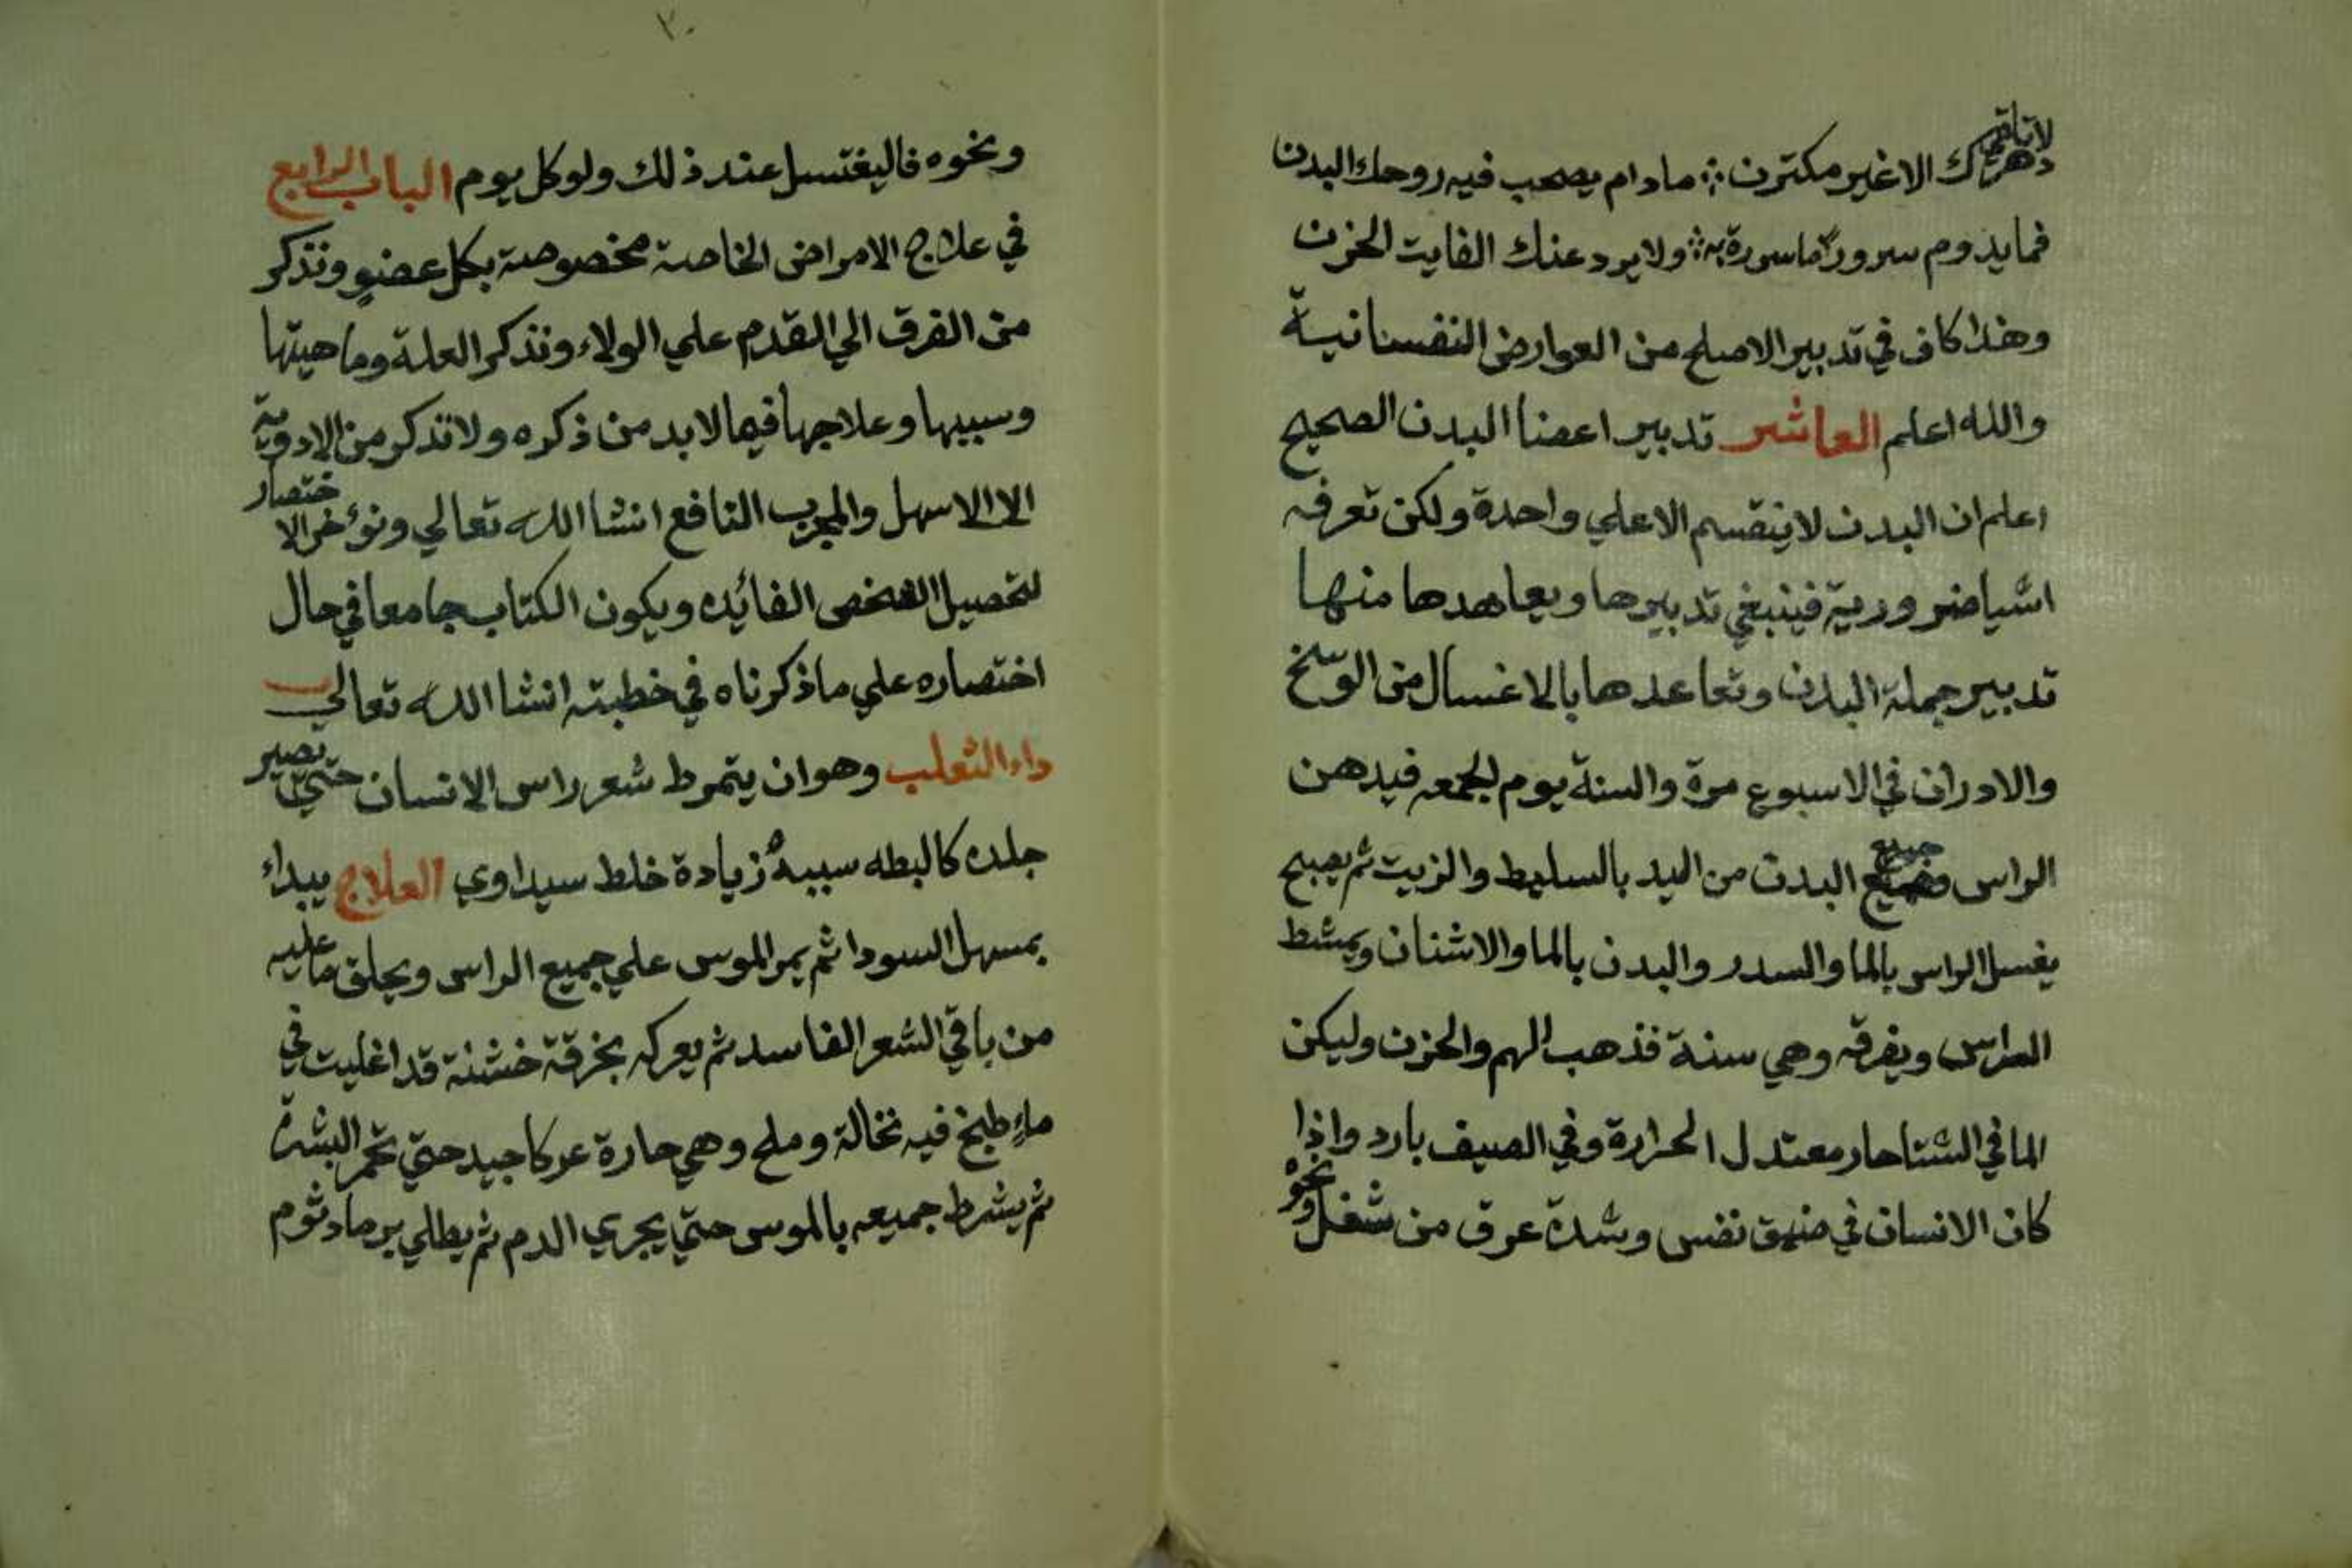 لا تلقى دهرك الا غير مكترث ∴ ما دام يصحب فيه روحك البدن
فما يدوم سرور ما سررة به ∴ ولا يرد عنك الفايت الحزن
وهذا كاف في تدبير الاصلح من العوارض النفسانية
والله اعلم العاشر تدبير اعضا البدن الصحيح
اعلم ان البدن لا ينقسم الا علي واحدة ولكن تعرفه
اشيا ضرورية فينبغي تدبيرها ويعاهدها منها
تدبير جملة البدن وتعاعدها بالاغسال من الوسخ
والادران في الاسبوع مرة والسنة يوم الجمعه فيدهن
الراس وجميع البدن من اليد بالسليط والزيت ثم يصبح
يغسل الراس بالما والسدر والبدن بالما والاشنان ويمشط
الراس ويفرقه وهي سنة فذهب الهم والحزن وليكن
الما في الشتا حار معتدل الحرارة وفي الصيف بارد واذا
كان الانسان في ضيق نفس وشدة عرق من شغل ونحوه
٢٠
ونحوه فاليغتسل عند ذلك ولو كل يوم الباب الرابع
في علاج الامراض الخاصة مخصوصة بكل عضو ونذكر
من الفرق الي القدم علي الولاء ونذكر العلة وما هيتها
وسببها وعلاجها فيما لا بد من ذكره ولا نذكر من الادوية
الا الاسهل والمجرب النافع انشا الله تعالي ونوخر الاختصار
لتحصيل الشخص الفائده ويكون الكتاب جامعا في حال
اختصاره علي ما ذكرناه في خطبته انشا الله تعالي
داء الثعلب وهو ان يتمرط شعر راس الانسان حتي تصير
جلده كالبطه سببه زيادة خلط سيداوي العلاج يبداء
بمسهل السودا ثم يمر الموس علي جميع الراس ويحلق ما عليه
من باقي الشعر الفاسد ثم يعركه بخرقة خشنة قد اغليت في
ماء طبخ فيه نخالة وملح وهي حارة عركا جيد حتي تحمر البشرة
ثم يشرط جميعه بالموس حتي يجري الدم ثم يطلي برماد ثوم